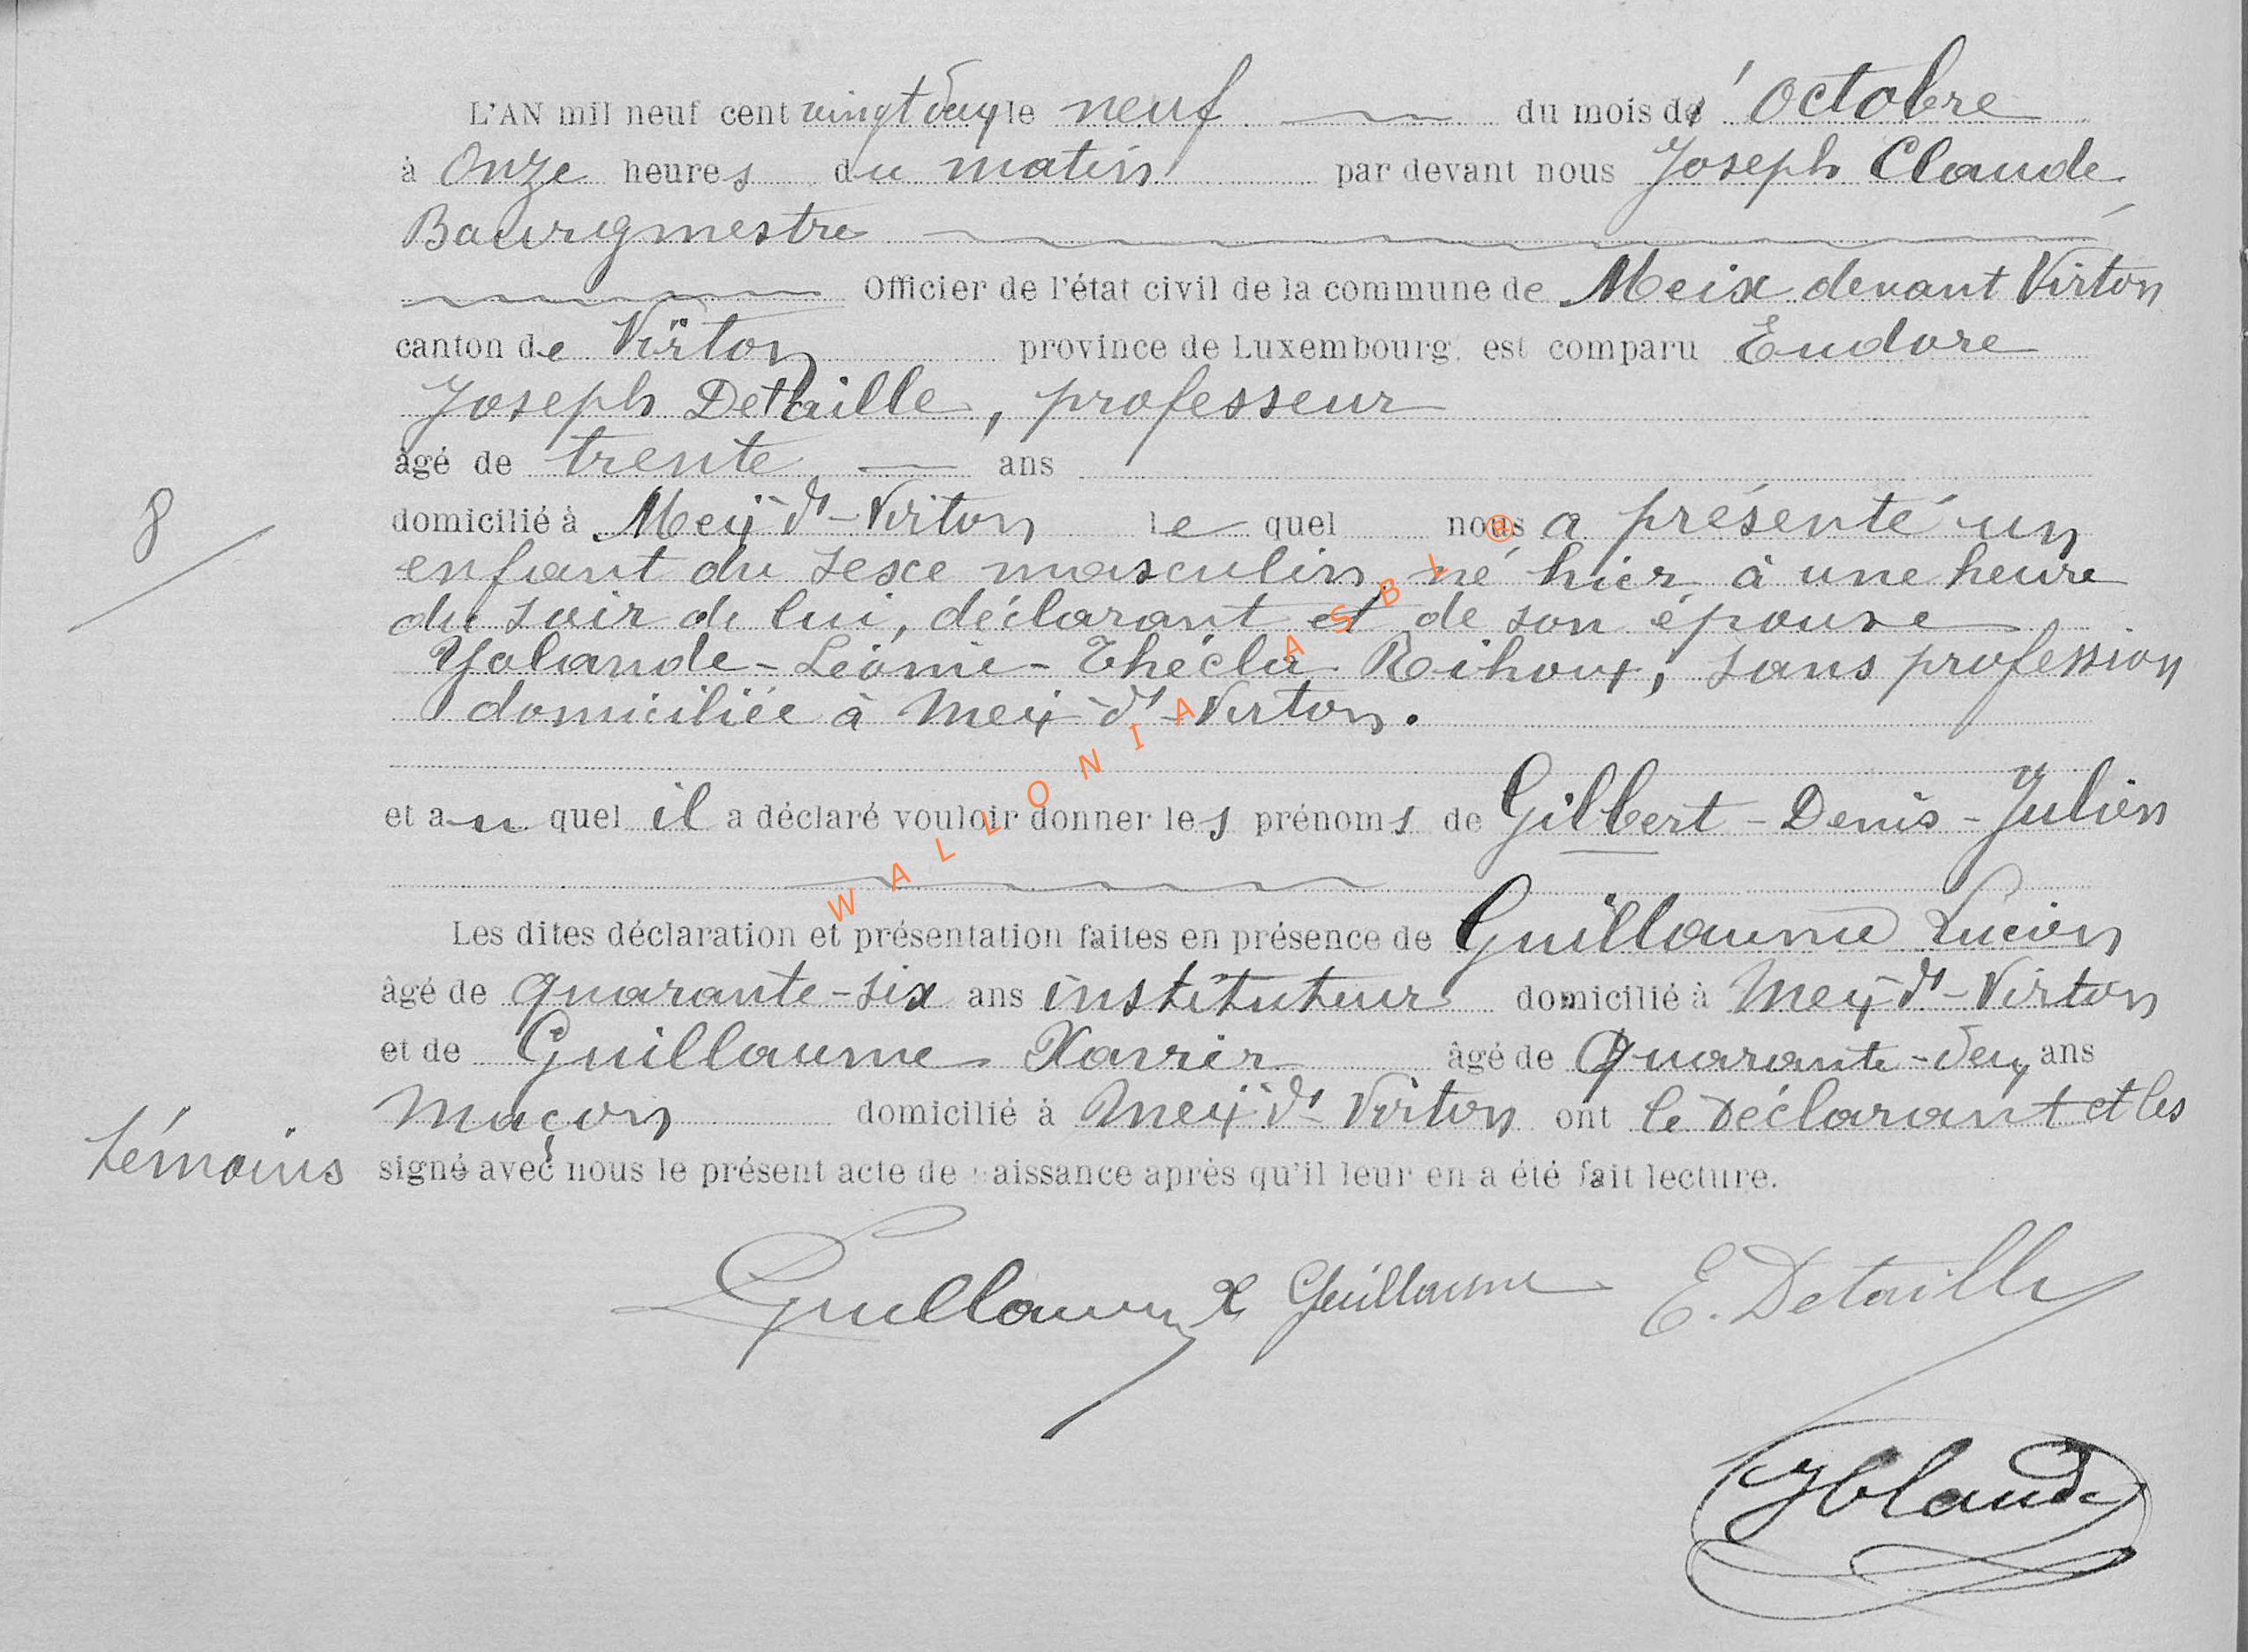 L'AN mil neuf cent vingt deux le neuf du mois d' Octobre
à Onze heures du matin par devant nous Joseph Claude
Bourgmestre
Officier de l'état civil de la commune de Meix devant Virton
canton de Virton province de Luxembourg est comparu Eudore
Joseph Detaille, professeur
âgé de trente ans
domicilié à Meix dt-Virton lequel nous a présenté un
8
enfant du sexe masculin né hier à une heure
du soir de lui, déclarant et de son épouse
Yolande-Léonie-Thécla Rihoux, sans profession
domiciliée à Meix dt-Virton.
et auquel il a déclaré vouloir donner les prénoms de Gilbert-Denis-Julien
Les dites déclaration et présentation faites en présence de Guillaume Lucien
âgé de quarante-six ans instituteur domicilié à Meix dt-Virton
et de Guillaume Xavier âgé de Quarante-deux ans
Maçon domicilié à Meix dt Virton ont le déclarant et les
témoins signé avec nous le présent acte de naissance après qu'il leur en a été fait lecture.
Guillaume X Guillaume E. Detaille
J Claude
WALLONIA ASBL ®